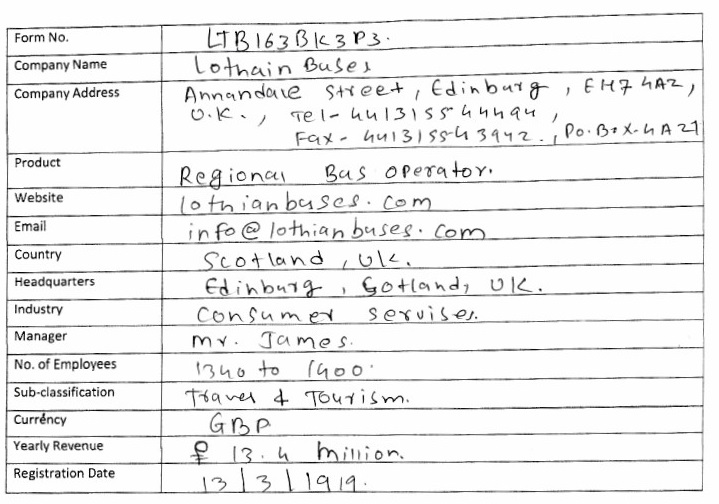 Form No. LTB163BK3P3.
Company Name Lothain Buses
Company Address Annandale Street, Edinburg, EH7 4A2,
U.K., Tel- 44131554494,
Fax- 441315543942., Po. Box-4A21
Product Regional Bus operator.
Website lothianbuses.com
Email info@lothianbuses.com
Country Scotland, UK.
Headquarters Edinburg, Scotland, UK.
Industry Consumer servises.
Manager Mr. James.
No. of Employees 1340 to 1400.
Sub-classification Travel & Tourism.
Currency GBP
Yearly Revenue 13.4 million.
Registration Date 13/3/1919.